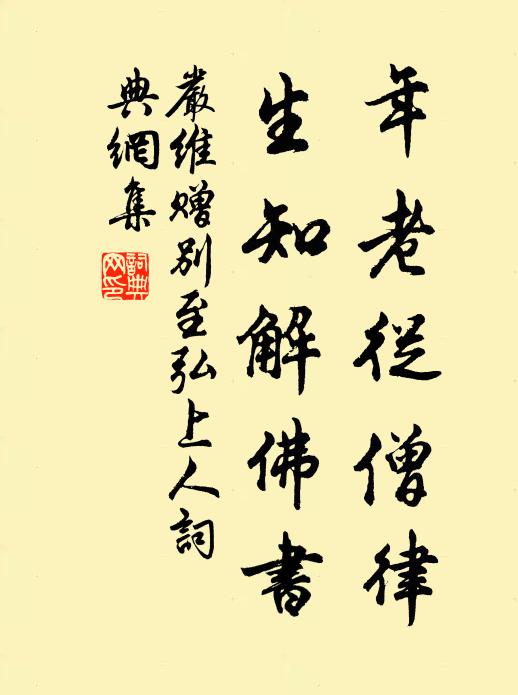 年老從僧律
生知解佛書
嚴維贈别至弘上人詞
典網集
詞典网印